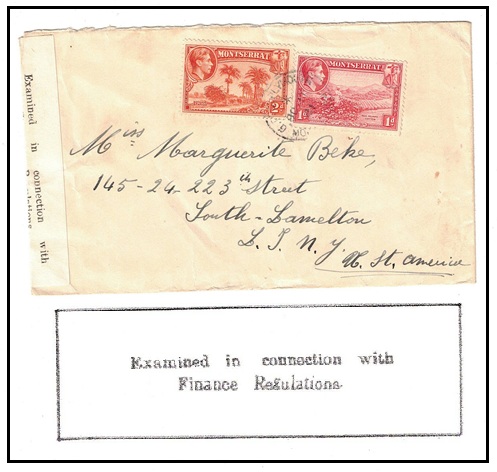 MONTSERRAT
2D
MONTSERRAT
1D
Examined in connection with
Miss Marguerite Beke,
145-24-223th Street
South-Lamelton
L. I. N. Y.
U. St. america
Examined in connection with
Finance Regulations.